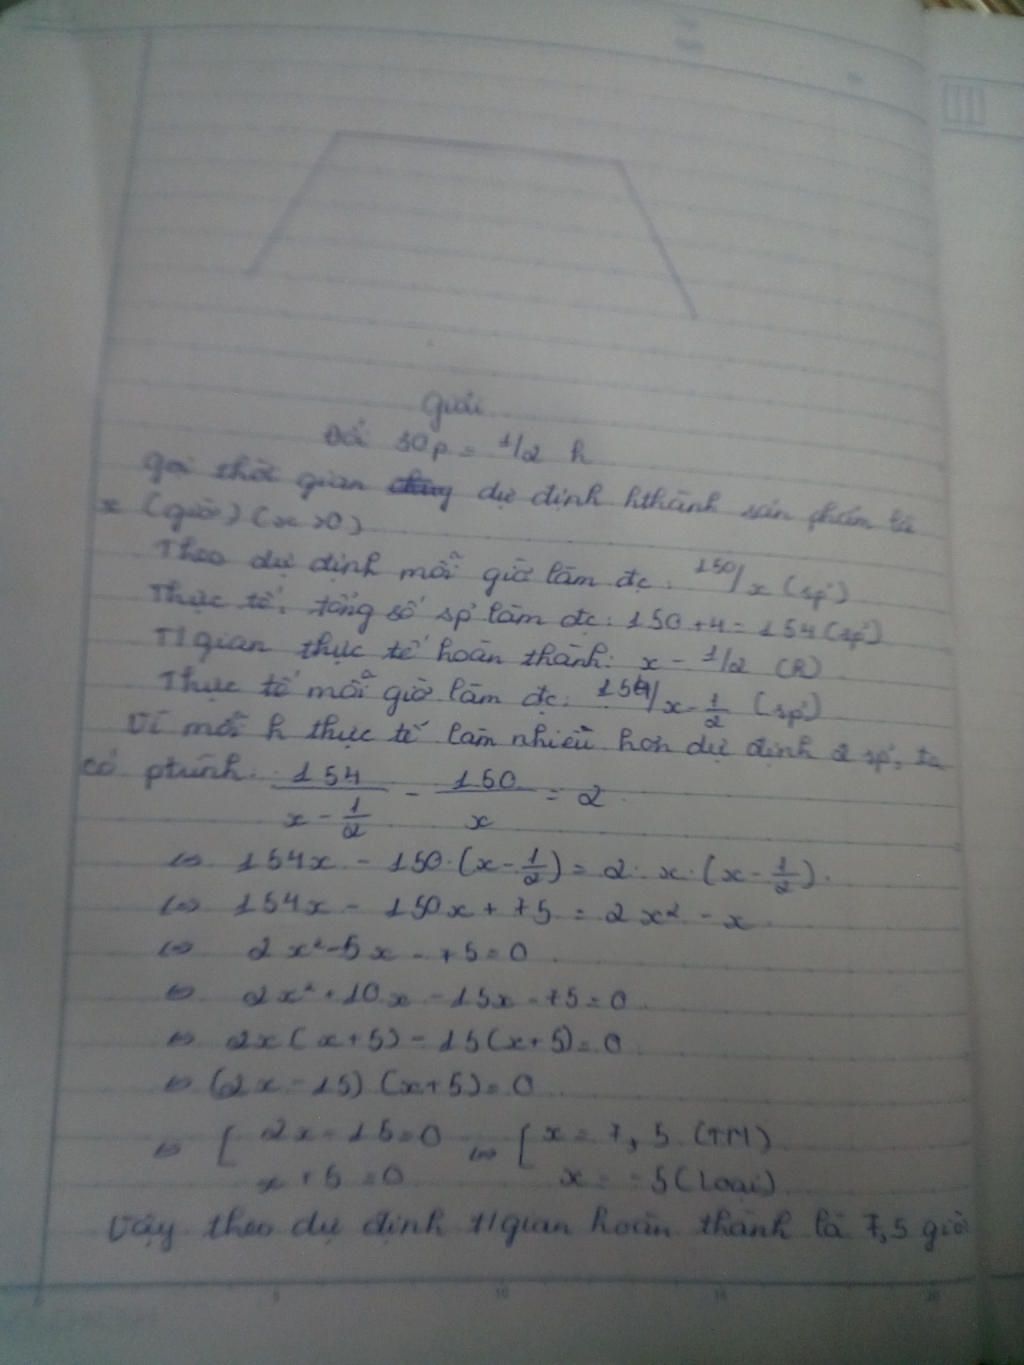 Giải
Đổi 30p = 1/2 h
Gọi thời gian dự định hthành sản phẩm là
x (giờ) (x>0)
Theo dự định mỗi giờ làm đc: 150/x (sp)
Thực tế, tổng số sp làm đc: 150+4=154(sp)
T/gian thực tế hoàn thành: x - 1/2 (h)
Thực tế mỗi giờ làm đc: 154/x-1/2 (sp)
Vì mỗi h thực tế làm nhiều hơn dự định 2 sp, ta
có ptrình: 154/(x - 1/2) - 150/x = 2
<=> 154x - 150.(x-1/2) = 2.x.(x-1/2).
<=> 154x - 150x + 75 = 2x² - x
<=> 2x²-5x-75=0
<=> 2x²+10x-15x-75=0
<=> 2x(x+5)-15(x+5)=0
<=> (2x-15)(x+5)=0
<=> [ 2x-15=0 <=> [ x=7,5 (TM)
x+5=0 x=-5(Loại)
Vậy theo dự định t/gian hoàn thành là 7,5 giờ